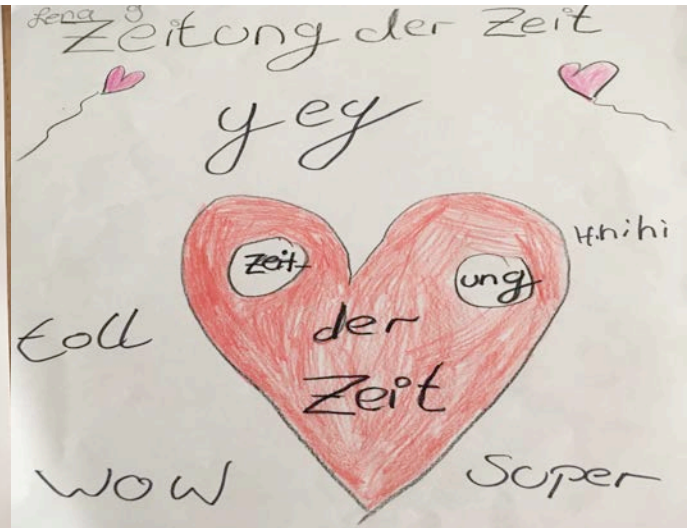 Lena 9
Zeitung der Zeit
yey
Hihihi
Zeit-
ung
der
toll
Zeit
WOW
Super